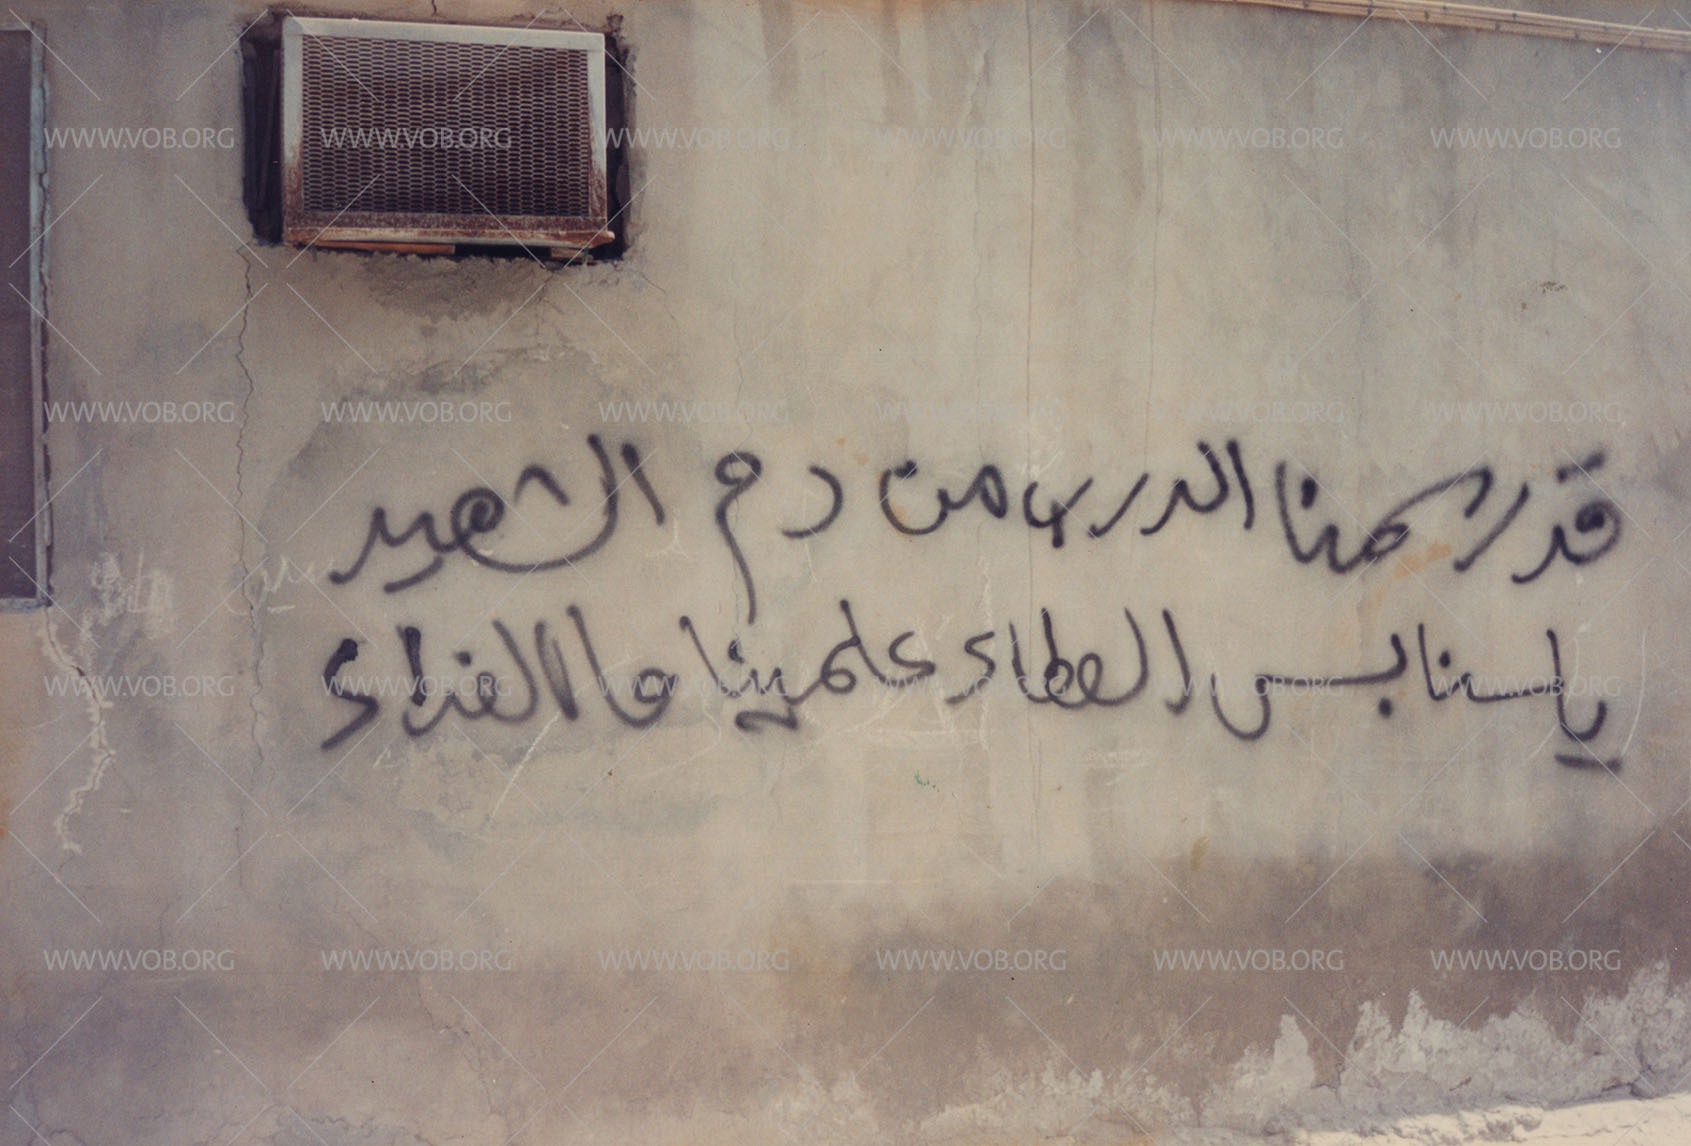 قد رسمنا الدرب من دم الشهيد
يا سنابس العطاء علمينا ما الفداء
WWW.VOB.ORG WWW.VOB.ORG WWW.VOB.ORG WWW.VOB.ORG WWW.VOB.ORG WWW.VOB.ORG
WWW.VOB.ORG WWW.VOB.ORG WWW.VOB.ORG WWW.VOB.ORG WWW.VOB.ORG WWW.VOB.ORG
WWW.VOB.ORG WWW.VOB.ORG WWW.VOB.ORG WWW.VOB.ORG WWW.VOB.ORG WWW.VOB.ORG
WWW.VOB.ORG WWW.VOB.ORG WWW.VOB.ORG WWW.VOB.ORG WWW.VOB.ORG WWW.VOB.ORG